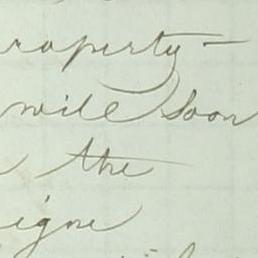 roperty -
will soon
the
eigne